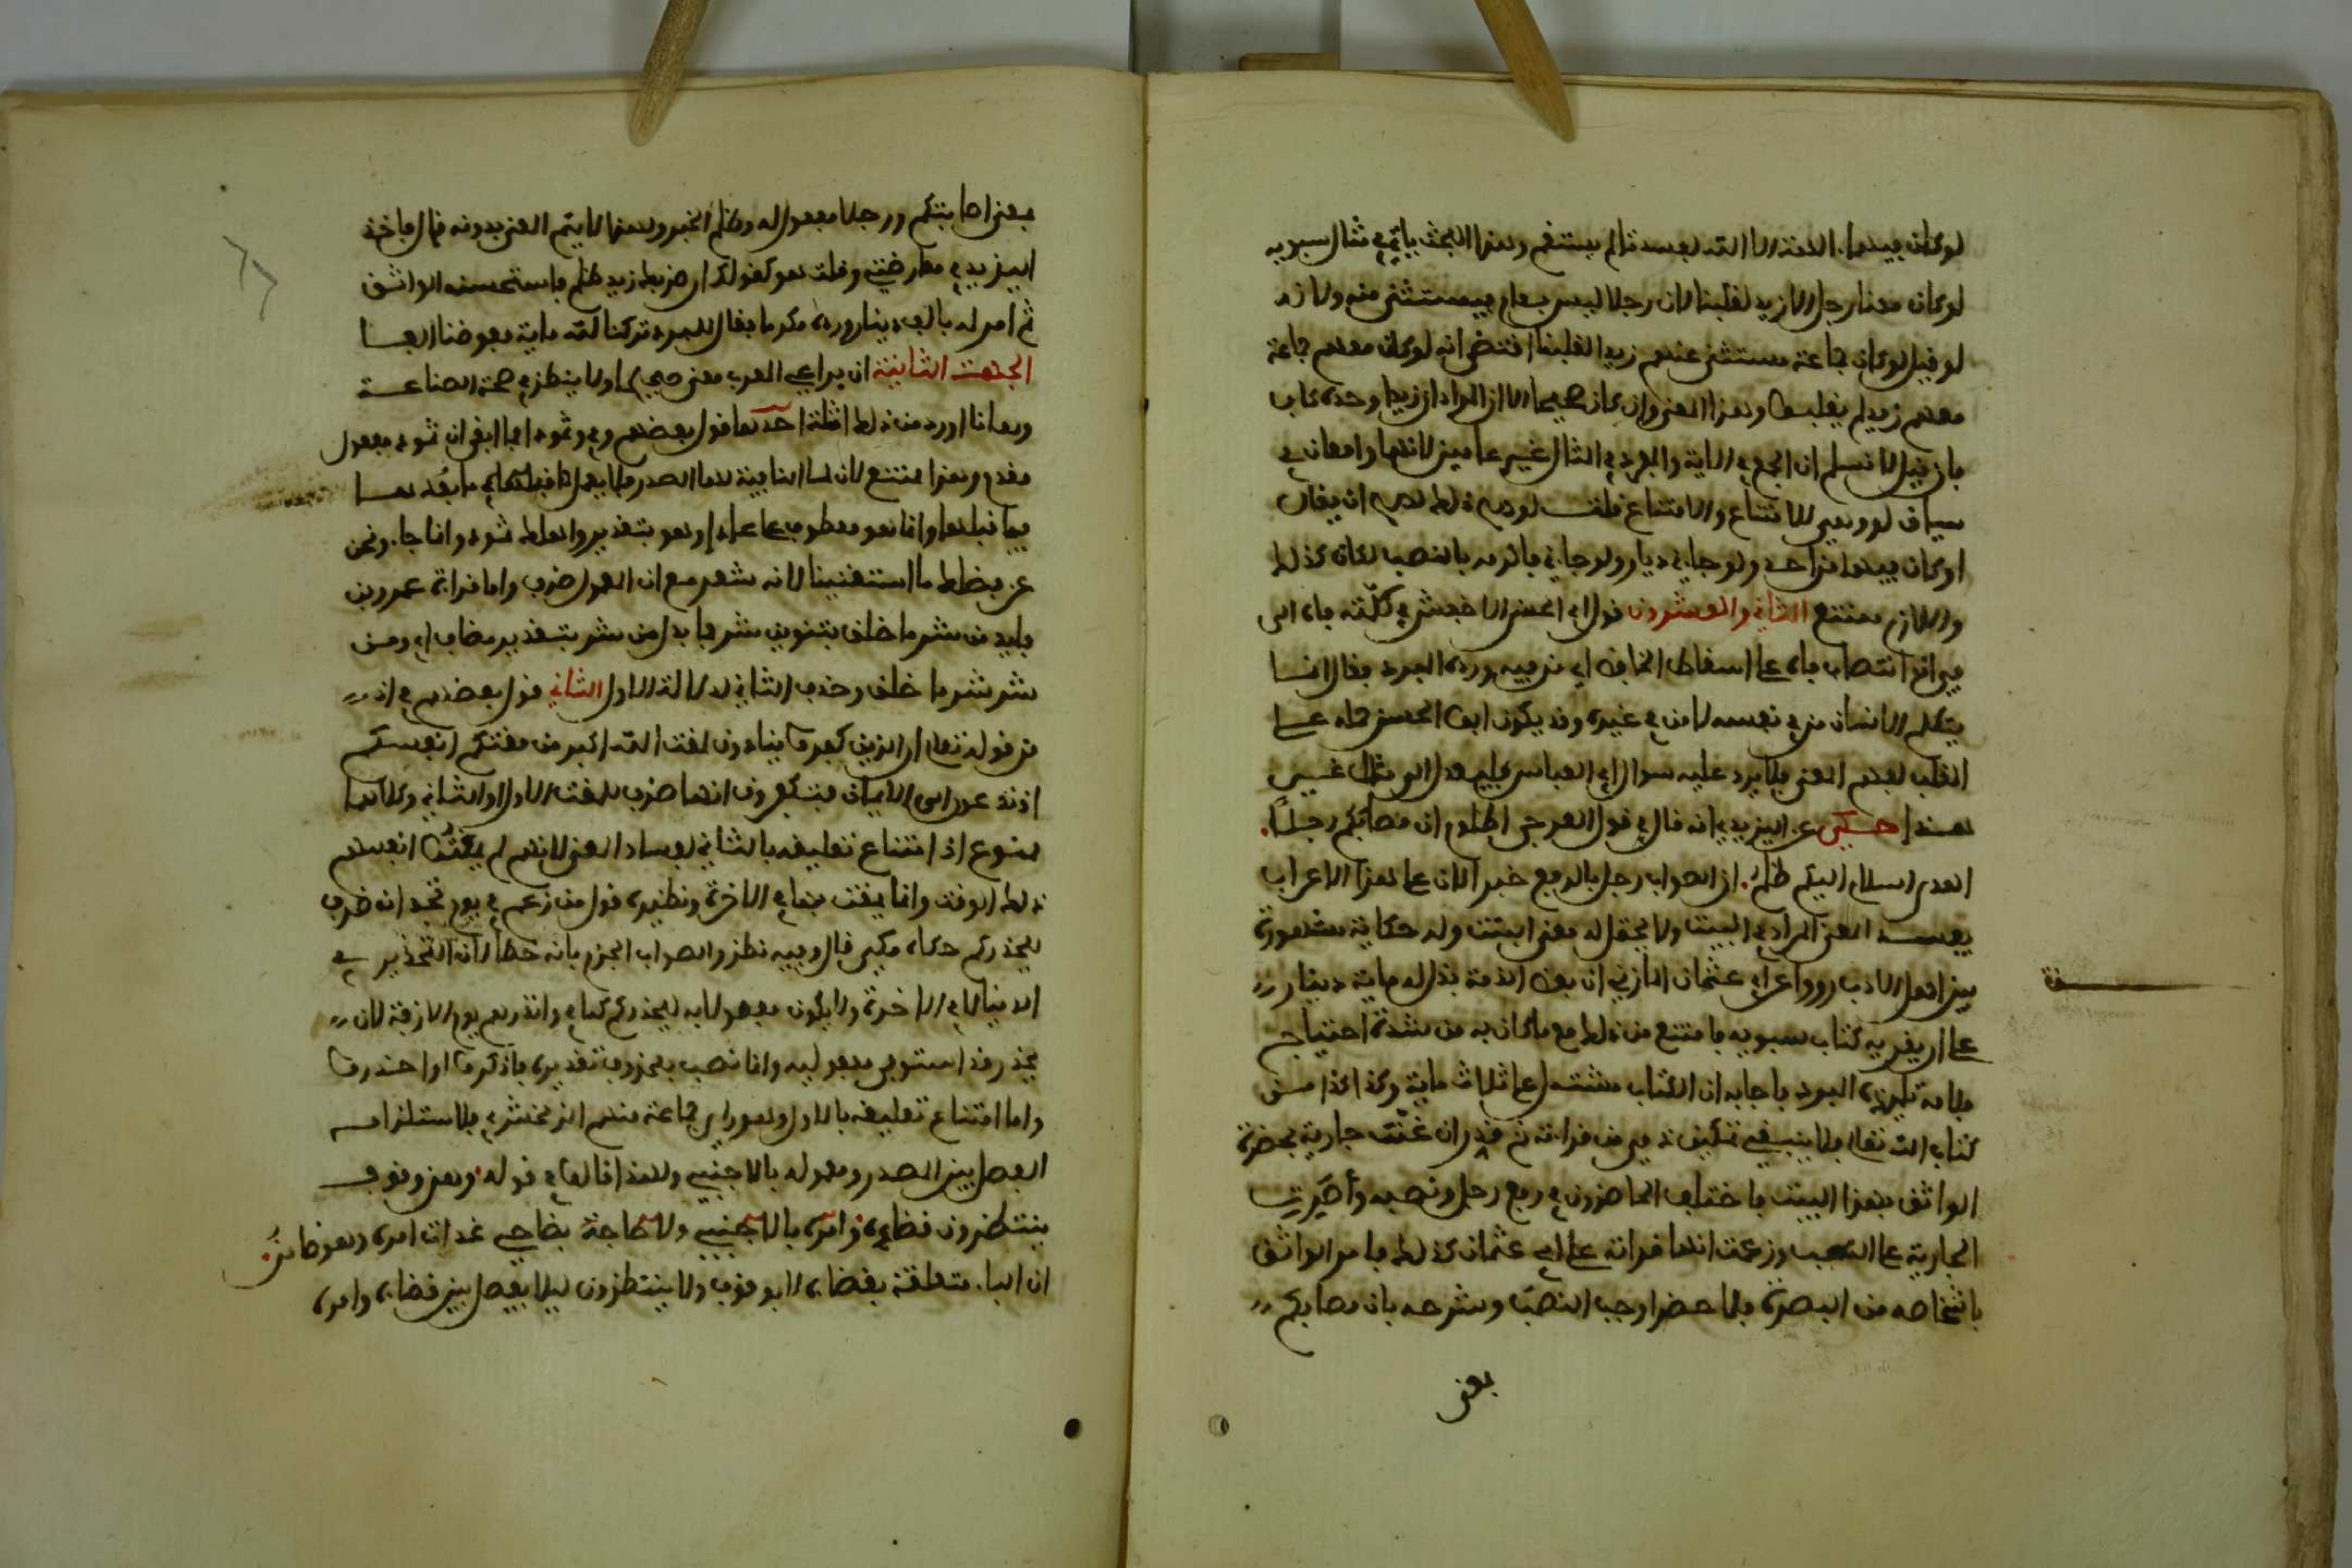 لو كان فيهما الهة الا الله لفسدتا لم يستقم وهذا البحث ياتي في مثال سيبويه
لو كان معنا رجل الا زيد لغلبنا لان رجلا ليس بعام فيستثنى منه ولانه
لو قيل لو كان جماعة مستثنى عنهم زيد لغلبنا اقتضى انه لو كان معهم جماعة
معهم زيد لم يغلبوا وهذا المعنى وان كان صحيحا الا ان المراد ان زيدا وحده كاف
فان قيل لا نسلم ان الجمع في الاية والمفرد في المثال غير عامين لانهما واقعان في
سياق لو وهي للامتناع والامتناع قلت لو صح ذلك لصح ان يقال
لو كان فيهما من احد ولو جاني ديار ولو جاني فاكرمه بالنصب لكان كذا
واللازم ممتنع الثاني والعشرون قول ابي الحسن الاخفش في كلمته فاه الى
في ان انتصاب فاه على اسقاط الخافض اي من فيه ورده المبرد فقال انما
يتكلم الانسان من في نفسه لا من في غيره وقد يكون ابو الحسن حمله على
القلب لفهم المعنى فلا يرد عليه سوال ابي العباس فليعدل الى مثال غيره
هذا حكي عن اليزيدي انه قال في قول العرجي اظلوم ان مصابكم رجلا
اهدى السلام اليكم ظلم ان الصواب رجل بالرفع خبر الان على هذا الاعراب
يفسد المعنى المراد في البيت ولا يتحصل له معنى البتة وله حكاية مشهورة
بين اهل الادب رووا عن ابي عثمان المازني ان بعض اهل الذمة بذل له ماية دينار
على ان يقريه كتاب سيبويه فامتنع من ذلك مع ما كان به من شدة احتياج
فلامه تلميذه المبرد فاجابه ان الكتاب مشتمل على ثلاث ماية وكذا كذا من
كتاب الله تعالى فلا ينبغي تمكين ذمي من قراته ثم قدر ان غنت جارية بحضرة
الواثق بهذا البيت فاختلف الحاضرون في رفع رجل ونصبه واصرت
الجارية على النصب وزعمت انها قراته على ابي عثمان كذلك فامر الواثق
باشخاصه من البصرة فلما حضر اوجب النصب وشرحه بان مصابكم
بمعنى
بمعنى اصابتكم ورجلا مفعوله وظلم الخبر ولهذا لا يتم المعنى بدونه قال فاخذ
اليزيدي في معارضتي وقلت هو كقولك ان ضربك زيدا ظلم فاستحسنه الواثق
ثم امر له بالف دينار ورده مكرما فقال للمبرد تركنا لله ماية فعوضنا الفا
الجهة الثانية ان يراعي المعرب معنى صحيحا ولا ينظر في صحة الصناعة
وها انا اورد من ذلك امثلة احدها قول بعضهم في وثمود فما ابقى ان ثمود مفعول
مقدم وهذا ممتنع لان لما النافية لها الصدر فلا يعمل ما بعدها
فيما قبلها وانما هو معطوف على عادا او هو بتقدير واهلك ثمود وانما جاء ونحن
عن فضلك ما استغنينا لانه شعر مع ان المعمول ظرف واما قراة عمرو بن
فايد من شر ما خلق بتنوين شر فما بدل من شر بتقدير مضاف اي ومن
شر شر ما خلق وحذف الثاني لدلالة الاول الثاني قول بعضهم في اذ
من قوله تعالى ان الذين كفروا ينادون لمقت الله اكبر من مقتكم انفسكم
اذ تدعون الى الايمان فتكفرون انها ظرف للمقت الاول او الثاني وكلاهما
ممنوع اذ امتناع تعليقه بالثاني لفساد المعنى لانهم لم يمقتوا انفسهم
ذلك الوقت وانما يمقتونها في الاخرة ونظيره قول من زعم في يوم تجد انه ظرف
ليحذركم حكاه مكي قال وفيه نظر والصواب الجزم بانه خطا لان التحذير في
الدنيا لا في الاخرة ولا يكون مفعولا به ليحذركم كما في وانذرهم يوم الازفة لان
يحذر قد استوفى مفعوليه وانما نصب بمحذوف تقديره فاذكروا او احذروا
واما امتناع تعليقه بالاول وهو راي جماعة منهم الزمخشري فلاستلزامه
الفصل بين المصدر ومعموله بالاجنبي ولهذا قالوا في قوله وهن وقوف
ينتظرن قضاءه بضاحي غداة امره وهو ضامز
ان الباء متعلقة بقضاءه لا بوقوف ولا ينتظرن ليلا يفصل بين قضاءه وامره